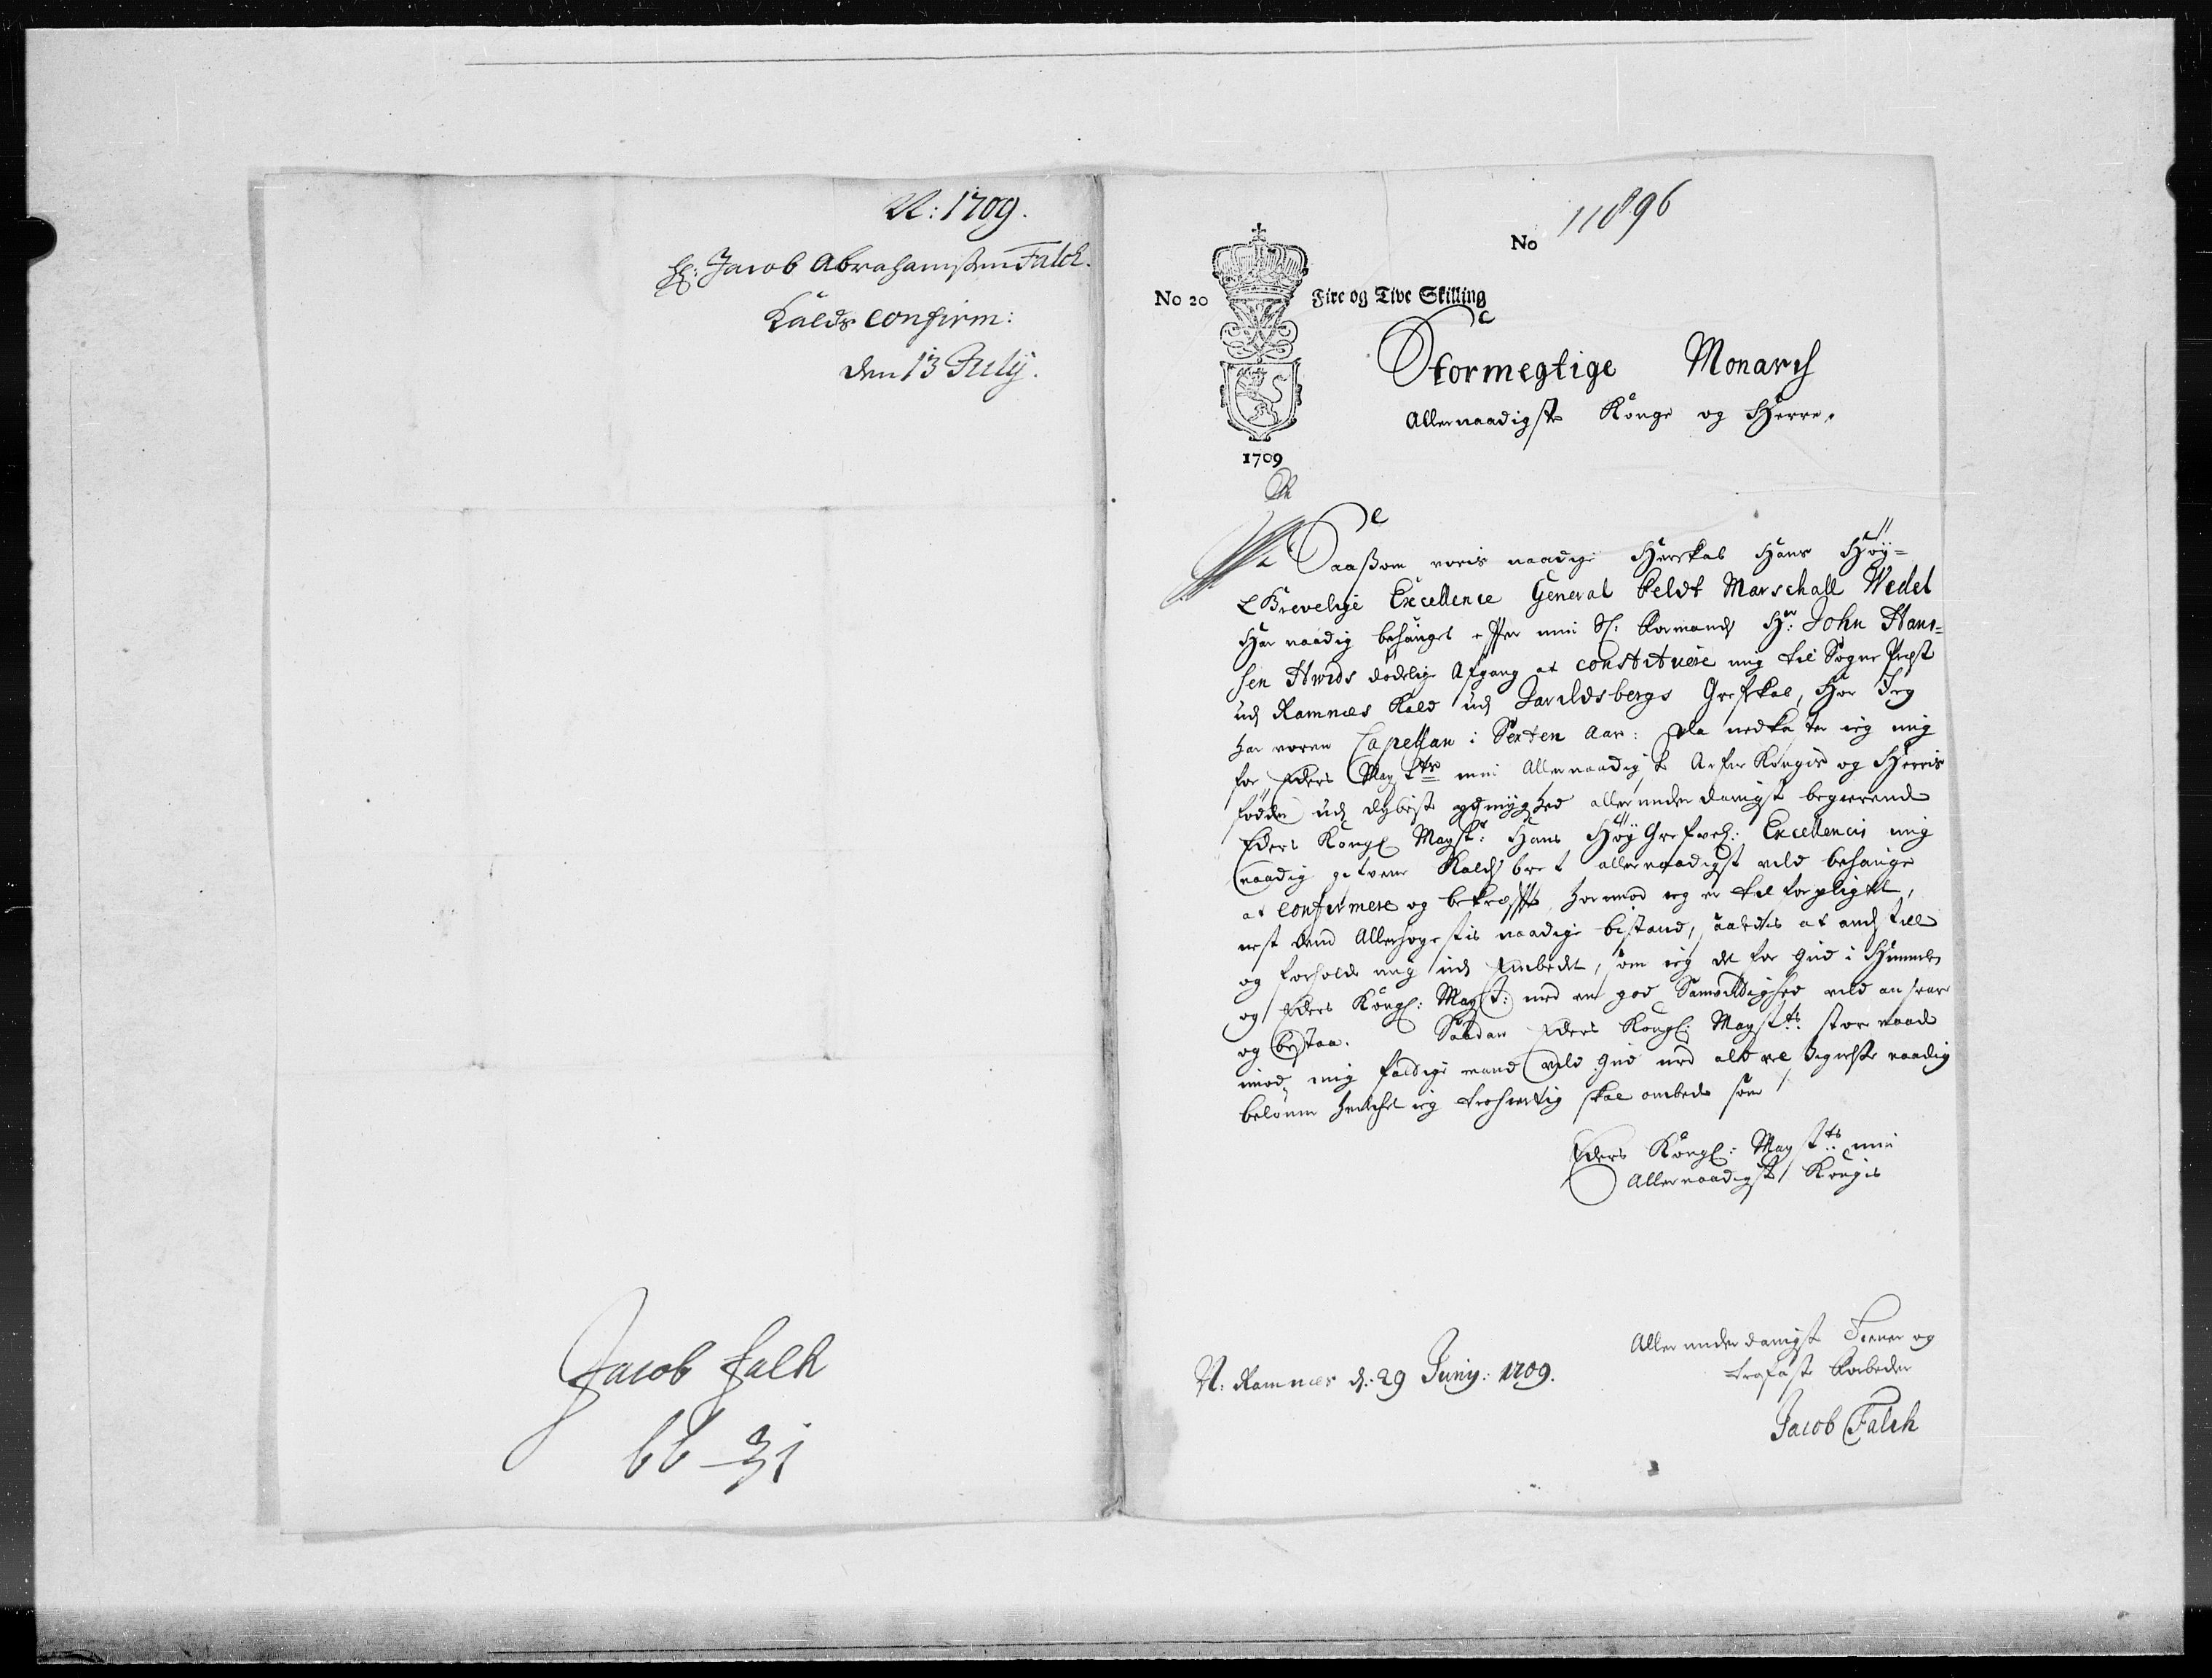 N: 1709.
Hr: Jacob Abrahamsøn Falck.
Kalds confirm:
den 13 July.
Jacob Falk
66-31
No 11896
No 20 Fire og Tive Skilling
1709
Stormegtige Monarch
Allernaadigste Konge og Herre.
Saasom voris naadige Herskab Hans Høy=
Grevelige Excellence General Feldt Marschall Wedel
Har naadig behaget efter min Sl. Formands Hr: John Hans=
sen Hwids dødelige Afgang at constituere mig til Sogne Præst
udj Ramnæs Kald udj Jarlsbergs Grefskab, Hor Jeg
har voren Capellan i Sexten Aar: Da nedkaster ieg mig
for Eders Maysts min Allernaadigste Arfve Kongis og Herris
fødder udj dybiste ydmyghed allerunderdanigst begierende
Eders Kongl Mayst: Hans Høy Grefvel: Excellencis mig
naadig gifvene Kalds bref allernaadigst vild behage
at confirmere og bekræffte, hormod ieg er til forpligtet,
nest dend Allerhøyestis naadige bistand, saaledis at andstille
og forholde mig udj Embedet, som ieg det for Gud i Himmelen
og Eders Kongl: Mayst: med en god Samvittighed vild ansvare
og bestaa. Saadan Eders Kongl: Maysts: store naade
imod mig fattige mand vild Gud med ald velsignelse naadig
belønne hvilchet ieg trohiertig skal ombede som
Eders Kongl: Maysts: min
Allernaadigste Kongis
Allerunderdanigste Tiener og
trofaste Forbeder
Jacob Falck
N: Ramnæs d: 29 Junij: 1709.